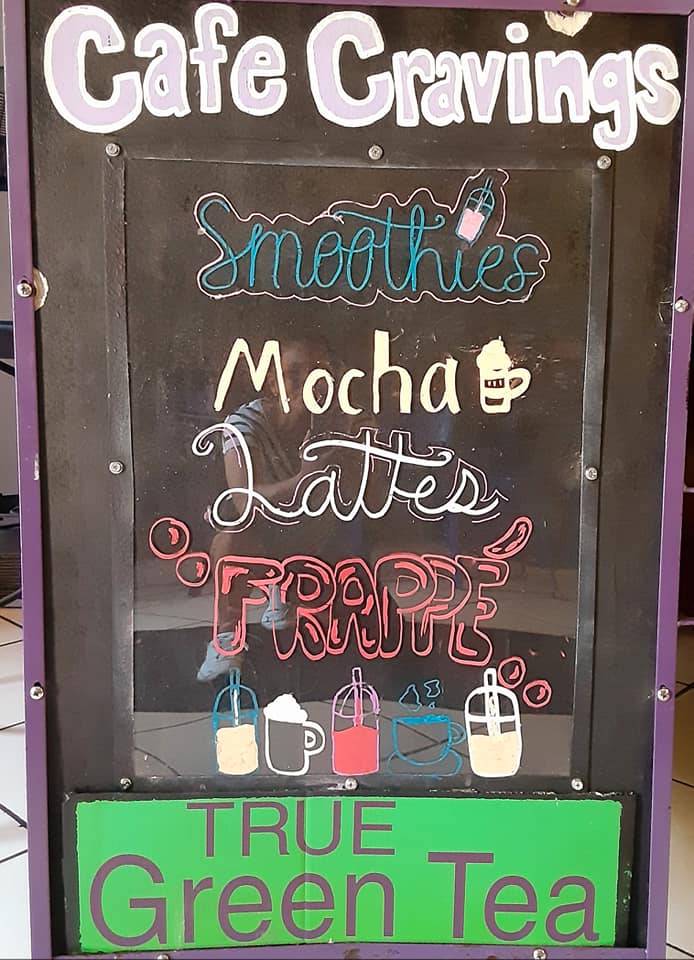 Cafe Cravings
Smoothies
Mocha
Lattes
FRAPPÉ
TRUE
Green Tea